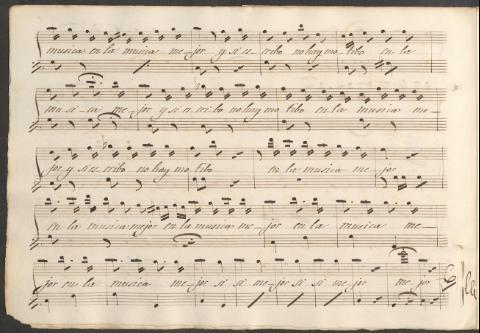 musica en la musica me-jor y si es-cribo no hay mo-tibo en la
mu-si-ca me-jor y si es cribo no hay mo tibo en la musica me-
jor y si es cribo no hay mo tibo en la musica me-jor
en la musica mejor en la musica me jor en la musica me-
jor en la musica me-jor si si me-jor si si me jor me jor